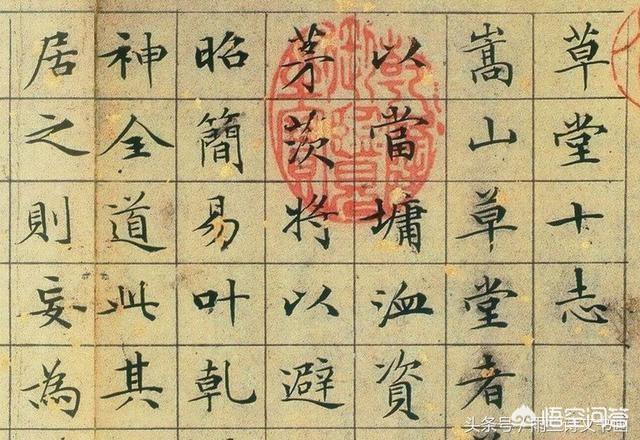 草堂十志
嵩山草堂者
以當墉洫資
茅茨將以避
昭簡易叶乹
神全道此其
居之則妄為
悟空问答